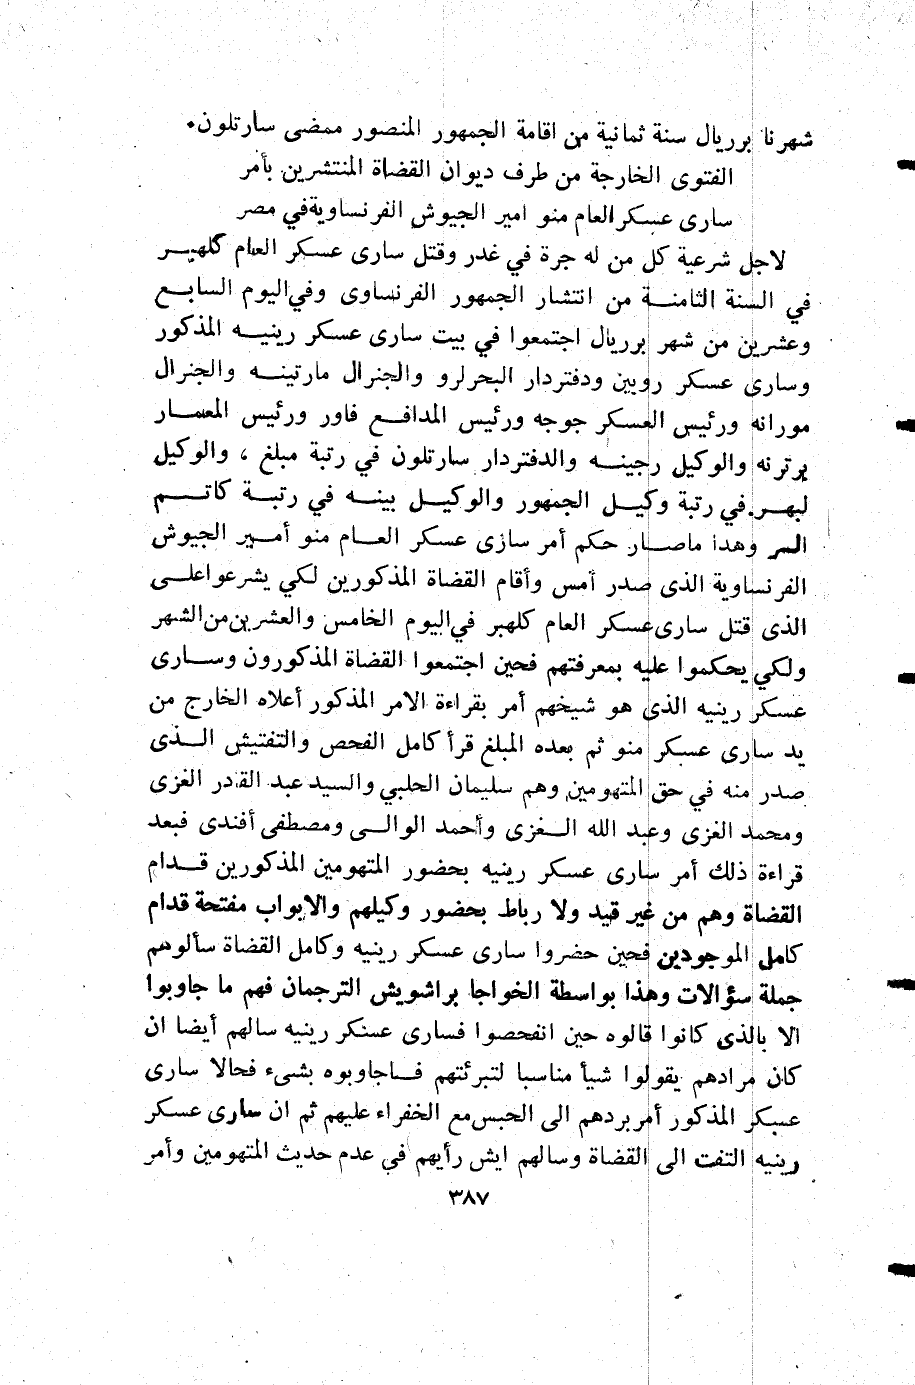 شهرنا برريال سنة ثمانية من اقامة الجمهور المنصور ممضى سارتلون٠
الفتوى الخارجة من طرف ديوان القضاة المنتشرين بأمر
سارى عسكر العام منو امير الجيوش الفرنساوية في مصر
لاجل شرعية كل من له جرة في غدر وقتل سارى عسكر العام كلهبر
في السنة الثامنة من انتشار الجمهور الفرنساوى وفي اليوم السابع
وعشرين من شهر برريال اجتمعوا في بيت سارى عسكر رينيه المذكور
وسارى عسكر روبين ودفتردار البحر لرو والجنرال مارتينه والجنرال
مورانه ورئيس العسكر جوجه ورئيس المدافع فاور ورئيس المعمار
برترنه والوكيل رجينه والدفتردار سارتلون في رتبة مبلغ ، والوكيل
لبهر في رتبة وكيل الجمهور والوكيل بينه في رتبة كاتم
السر وهذا ماصار حكم أمر سازى عسكر العام منو أمير الجيوش
الفرنساوية الذى صدر أمس وأقام القضاة المذكورين لكي يشرعوا على
الذى قتل سارى عسكر العام كلهبر في اليوم الخامس والعشرين من الشهر
ولكي يحكموا عليه بمعرفتهم فحين اجتمعوا القضاة المذكورون وسارى
عسكر رينيه الذى هو شيخهم أمر بقراءة الامر المذكور أعلاه الخارج من
يد سارى عسكر منو ثم بعده المبلغ قرأ كامل الفحص والتفتيش الذى
صدر منه في حق المتهومين وهم سليمان الحلبي والسيد عبد القادر الغزى
ومحمد الغزى وعبد الله الغزى وأحمد الوالى ومصطفى أفندى فبعد
قراءة ذلك أمر سارى عسكر رينيه بحضور المتهومين المذكورين قدام
القضاة وهم من غير قيد ولا رباط بحضور وكيلهم والابواب مفتحة قدام
كامل الموجودين فحين حضروا سارى عسكر رينيه وكامل القضاة سألوهم
جملة سؤالات وهذا بواسطة الخواجا براشويش الترجمان فهم ما جاوبوا
الا بالذى كانوا قالوه حين انفحصوا فسارى عسنكر رينيه سالهم أيضا ان
كان مرادهم يقولوا شيأ مناسبا لتبرئتهم فاجاوبوه بشىء فحالا سارى
عسكر المذكور أمر بردهم الى الحبس مع الخفراء عليهم ثم ان سارى عسكر
رينيه التفت الى القضاة وسالهم ايش رأيهم في عدم حديث المتهومين وأمر
٣٨٧